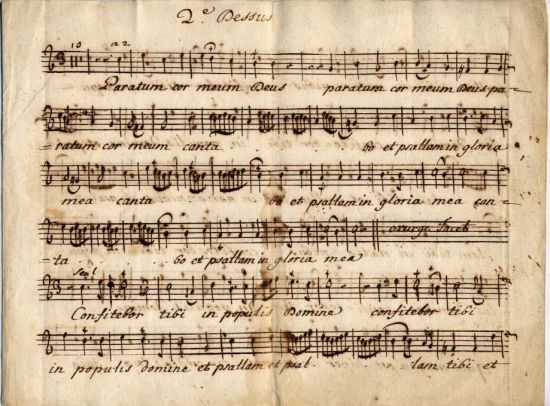 2.e Dessus
10 a2
Paratum cor meum Deus paratum cor meum Deus pa=
=ratum cor meum canta bo et psallam in gloria
mea canta bo et psallam in gloria mea can=
ta bo et psallam in gloria mea
Seul
Confitebor tibi in populis Domine confitebor tibi
in populis domine et psallam et psal lam tibi et